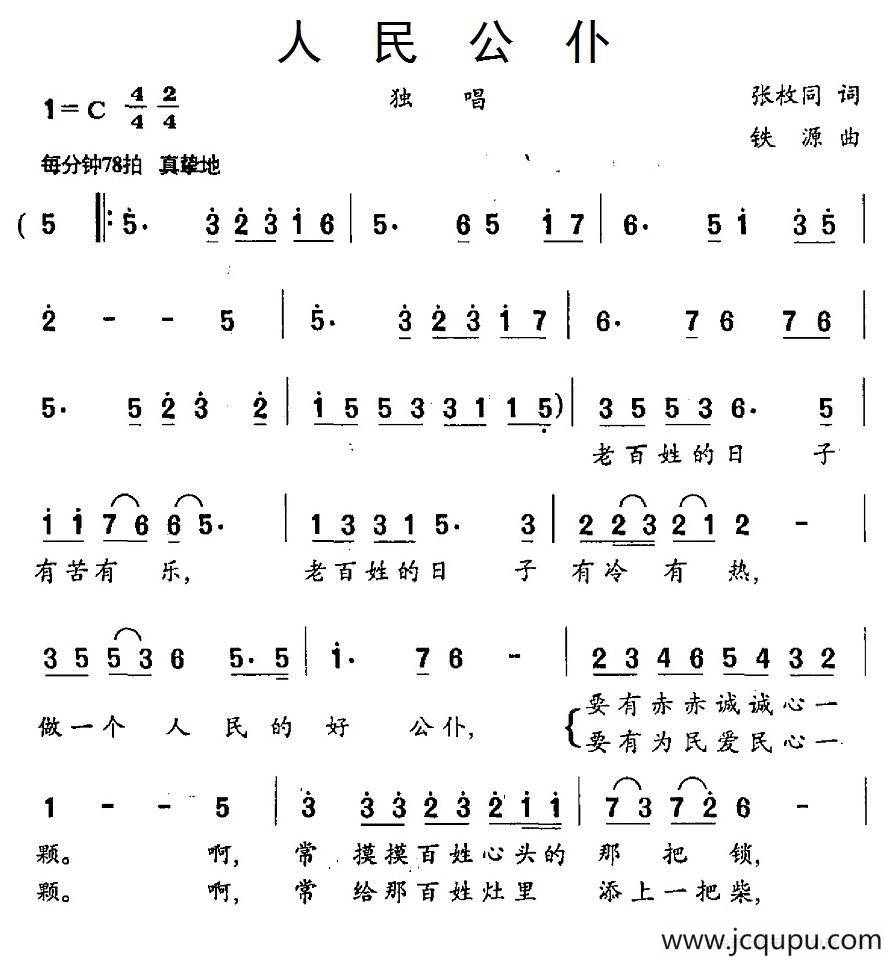 人民公仆
1=C 4/4 2/4 独唱 张枚同 词
铁源 曲
每分钟78拍 真挚地
( 5 ‖: 5̇. 3̇ 2̇ 3̇ 1̇ 6 | 5. 6 5 1̇ 7 | 6. 5 1̇ 3̇ 5̇ |
2̇ - - 5 | 5̇. 3̇ 2̇ 3̇ 1̇ 7 | 6. 7 6 7 6 |
5. 5 2̇ 3̇ 2̇ | 1̇ 5 5 3 3 1 1 5̣ ) | 3 5 5 3 6. 5 |
老百姓的日 子
1̇ 1̇ 7 6 6 5. | 1 3 3 1 5. 3 | 2 2 3 2 1 2 - |
有苦有 乐, 老百姓的日 子 有冷 有 热,
3 5 5 3 6 5. 5 | 1̇. 7 6 - | 2 3 4 6 5 4 3 2 |
做一个 人 民的好 公仆, 要有赤赤诚诚心一
要有为民爱民心一
1 - - 5 | 3̇ 3̇ 3̇ 2̇ 3̇ 2̇ 1̇ 1̇ | 7 3 7 2̇ 6 - |
颗。 啊, 常 摸摸百姓心头的 那 把 锁,
颗。 啊, 常 给那百姓灶里 添上一把柴,
www.jcqupu.com